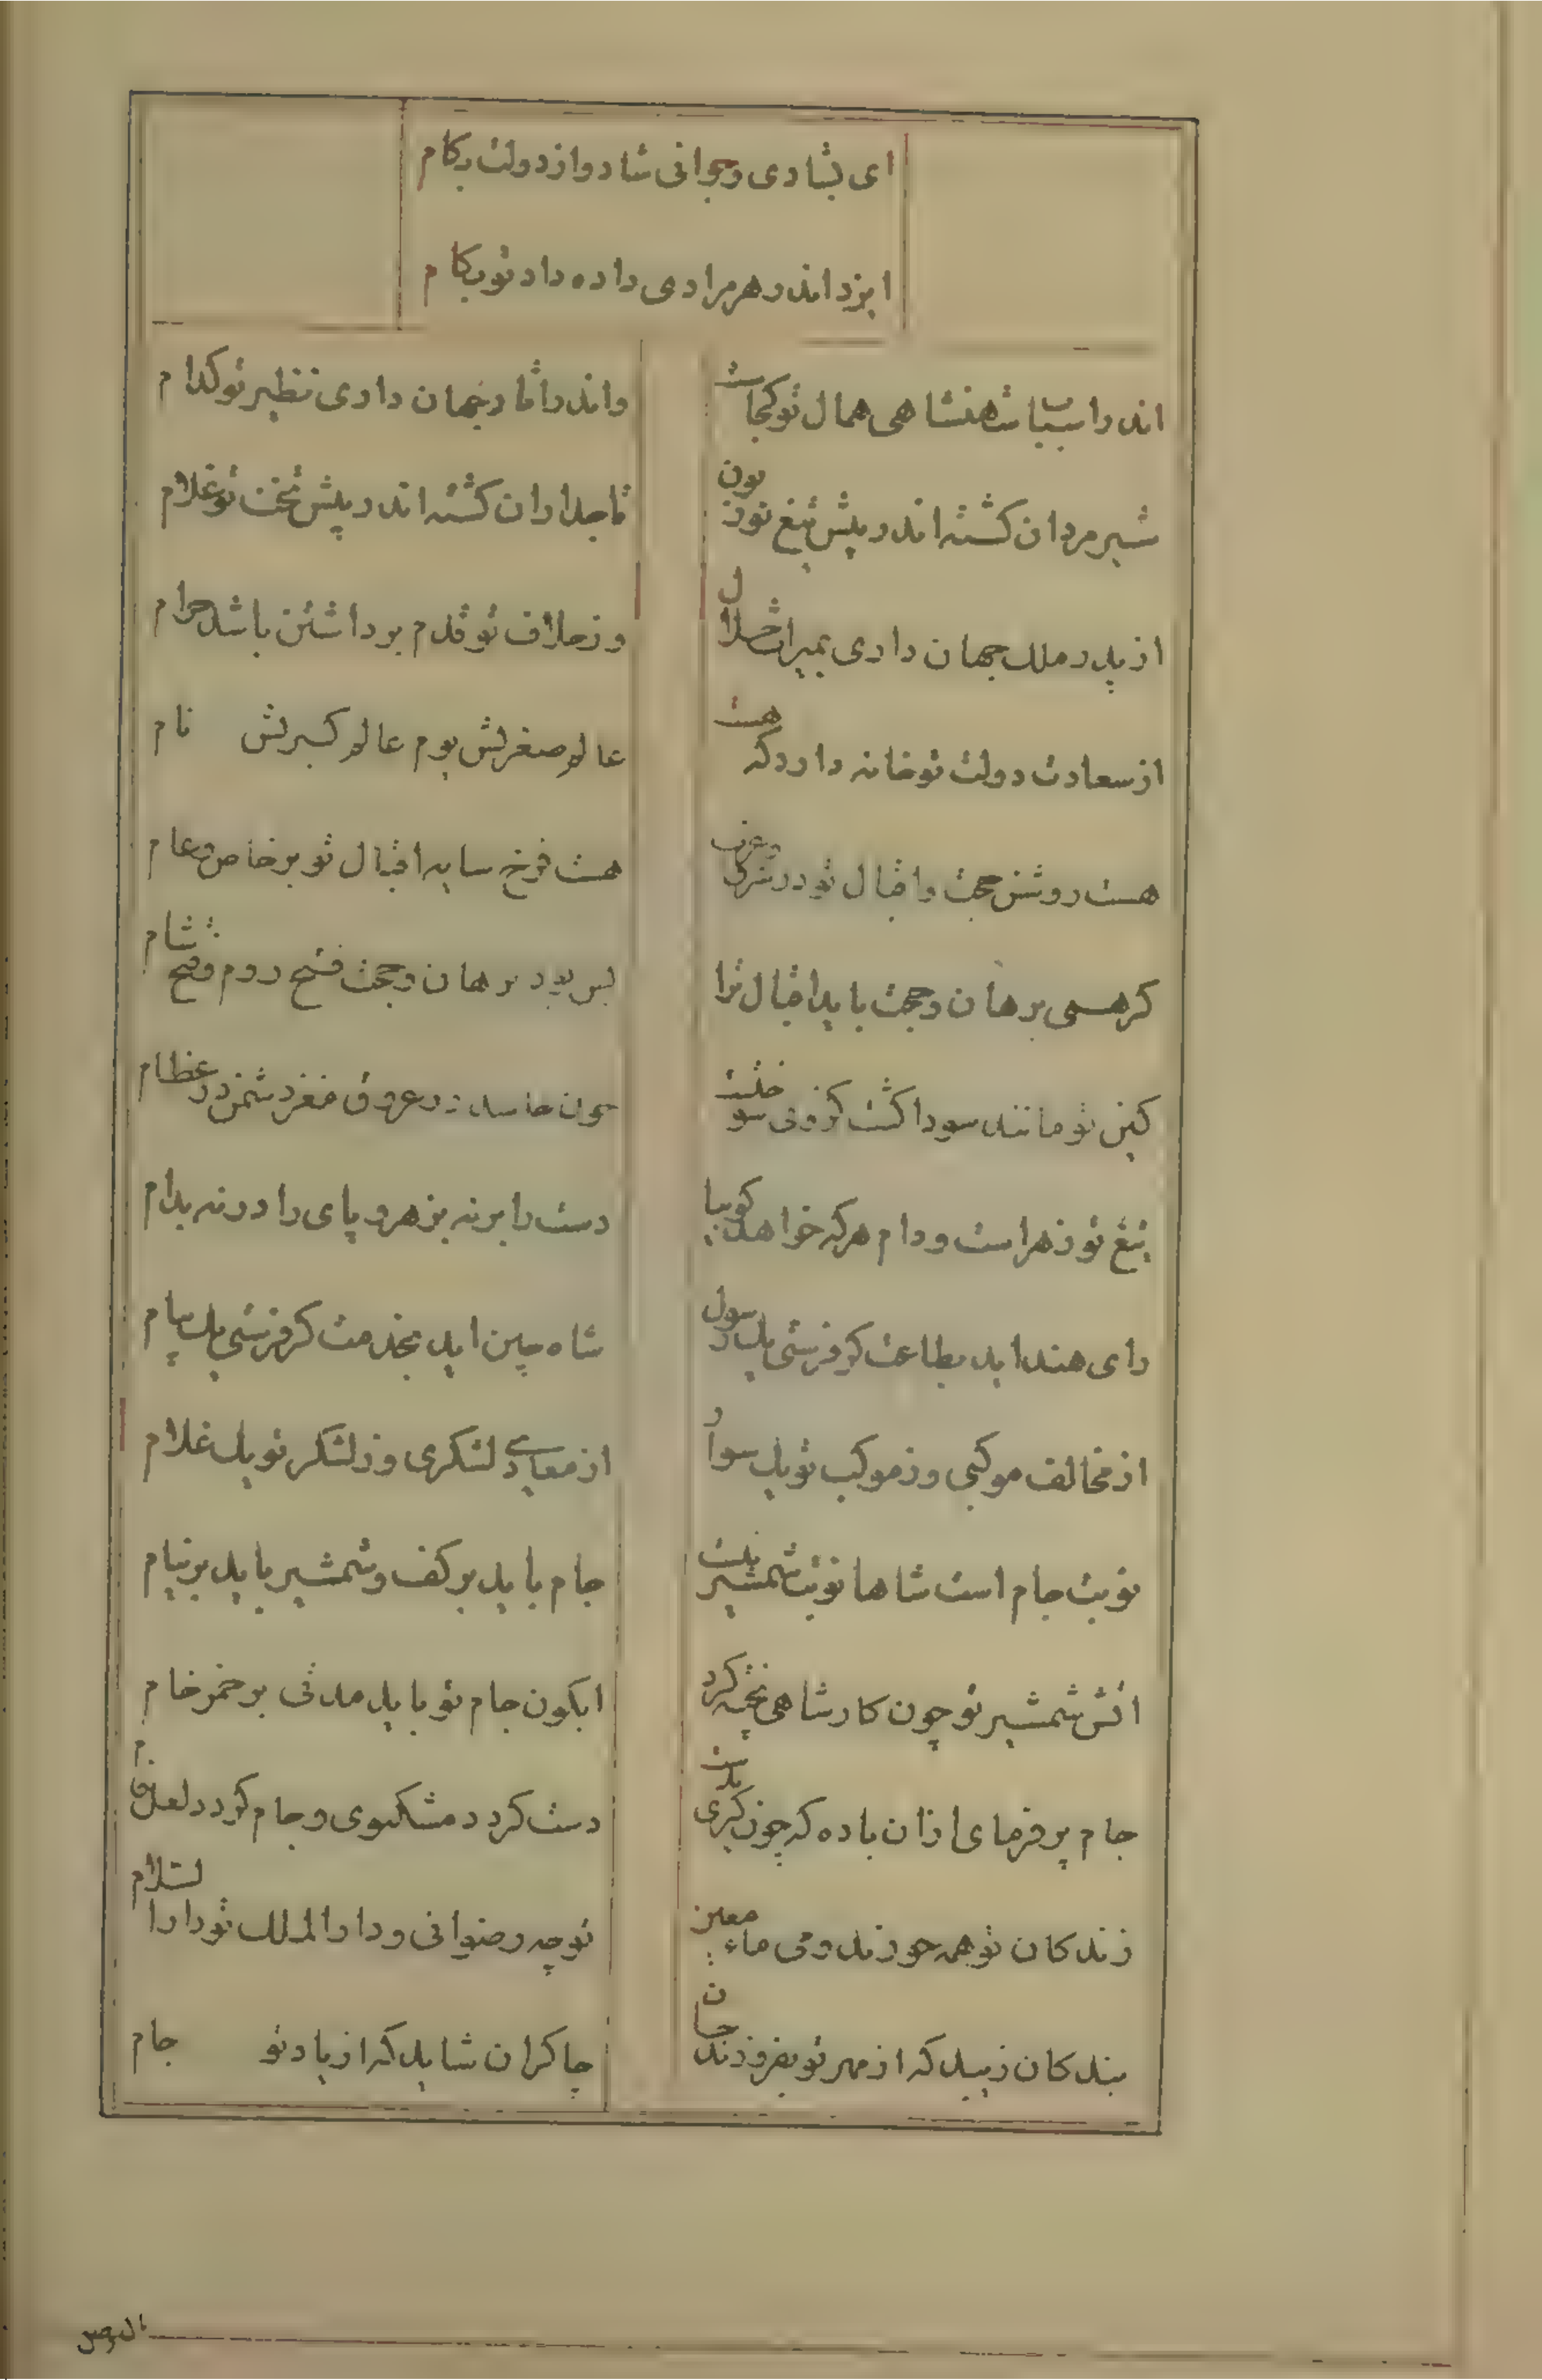 ای بشادی و جوانی شاد و از دولت بکام
ایزد اندر هر مرادی داده داد تو بکام
اندر اسباب شاهنشاهی همال تو کجاست
واندر اثار جهان داری نظیر تو کدام
شیر مردان کشته اند در پیش تیغ تو زبون
تاجداران کشته اند در پیش تخت تو غلام
از پدر ملک جهان داری بمیراث حلال
وز خلاف تو قدم برداشتن باشد حرام
از سعادت دولت تو خانه دارد که هست
عالم صغریش بوم عالم کبریش نام
هست روشن حجت و اقبال تو در شرق و غرب
هست فرخ سایه اقبال تو بر خاص و عام
کر همی برهان و حجت باید اقبال ترا
بس بود برهان و حجت فتح روم و فتح شام
کین تو مانند سودا کشت کز وی سوختست
خون حاسد در عروق و مغز دشمن در عظام
تیغ تو زهر است و دام هر که خواهد کو بیا
دست را بر نه بزهر و پای را در نه بدام
رای هند اید بطاعت کر فرستی یک رسول
شاه چین اید بخدمت کر فرستی یک پیام
از مخالف موکبی وز موکب تو یک سوار
از معادی لشکری وز لشکر تو یک غلام
نوبت جام است شاها نوبت شمشیر نیست
جام باید بر کف و شمشیر باید بر نیام
اتش شمشیر تو چون کار شاهی پخته کرد
ابکون جام تو باید مدتی بر خمر خام
جام پر فرمای ازان باده که چون گیری بدست
دست کردد مشکبوی و جام کردد لعل فام
زندکان تو همه حورند و می ماء معین
تو چه رضوانی و دار الملک تو دار السلام
بندکان زیبد که از مهر تو بفروزند جان
چاکران شاید که از یاد تو جام